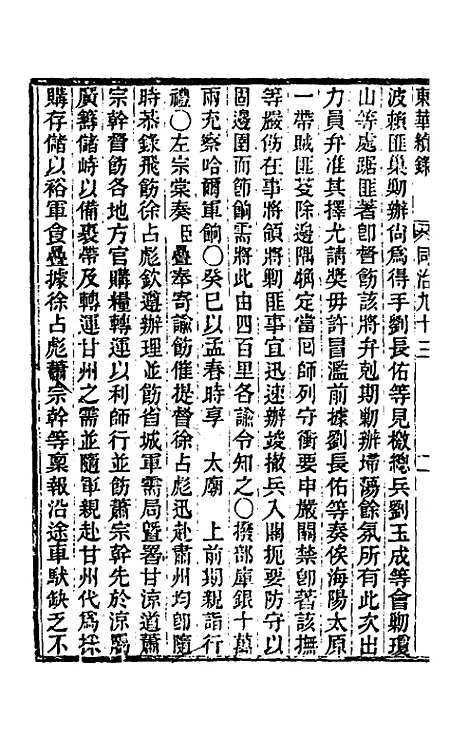 東華續錄 同治九十三 二
波賴匪巢剿辦尙爲得手劉長佑等見檄總兵劉玉成等會剿瓊
山等處踞匪著卽督飭該將弁剋期剿辦埽蕩餘氛所有此次出
力員弁准其擇尤請獎毋許冒濫前據劉長佑等奏俟海陽太原
一帶賊匪芟除邊隅稍定當囘師列守衝要申嚴關禁卽著該撫
等嚴飭在事將領將剿匪事宜迅速辦竣撤兵入關扼要防守以
固邊圉而節餉需將此由四百里各諭令知之〇撥部庫銀十萬
兩充察哈爾軍餉〇癸巳以孟春時享 太廟 上前期親詣行
禮〇左宗棠奏臣疊奉寄諭飭催提督徐占彪迅赴肅州均卽隨
時恭錄飛飭徐占彪欽遵辦理並飭省城軍需局暨署甘涼道蕭
宗幹督飭各地方官購糧轉運以利師行並飭蕭宗幹先於涼屬
廣籌儲峙以備裹帶及轉運甘州之需並隨軍親赴甘州代爲採
購存儲以裕軍食疊據徐占彪蕭宗幹等稟報沿途車馱缺乏不